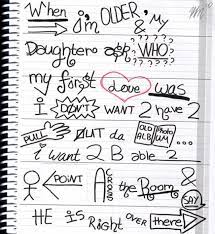 When i'm OLDER, & My
Daughters ask WHO? ??????
my first Love was
I DON'T WANT 2 have 2
PULL OUT da OLD ALBUM PHOTO ...
i want 2 B able 2
POINT ACROSS the Room &
SAY
HE is Right OVER there